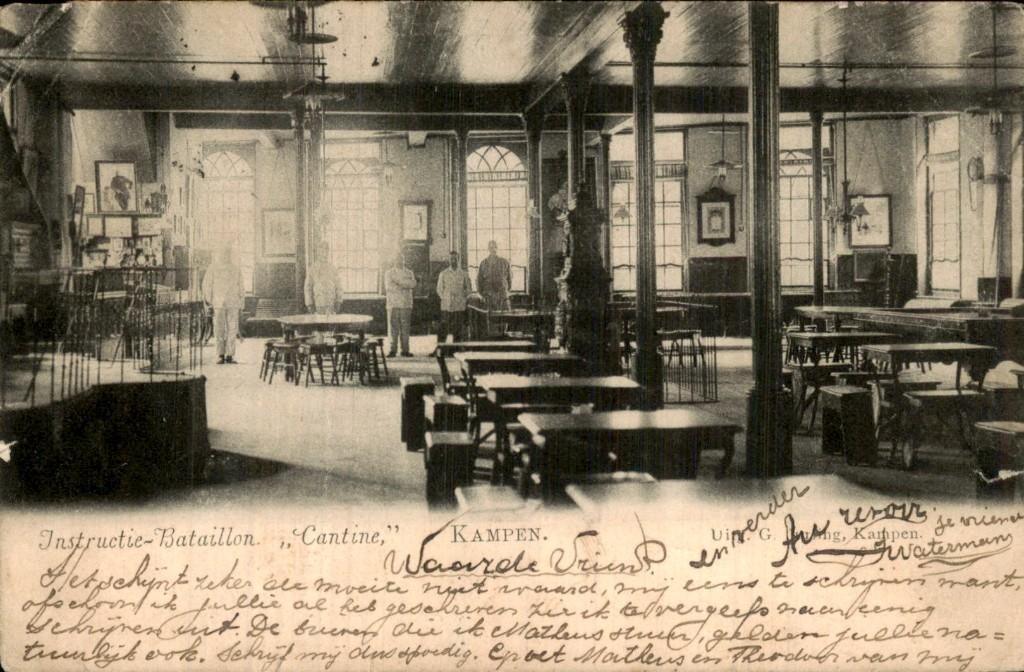 Instructie-Bataillon. „Cantine,"
KAMPEN.
Uitg. G. Kampen.
Waarde Vriend
Het schijnt zeker de moeite niet waard, mij eens te schrijven want,
ofschoon ik jullie al heb geschreven zie ik te vergeefs naar eenig
schrijven uit. De brieven die ik Matheus stuur, gelden jullie na=
tuurlijk ook. Schrijf mij dus spoedig. Groet Matheus en Theodoor van mij
en verder
Au revoir
je vriend
Waterman